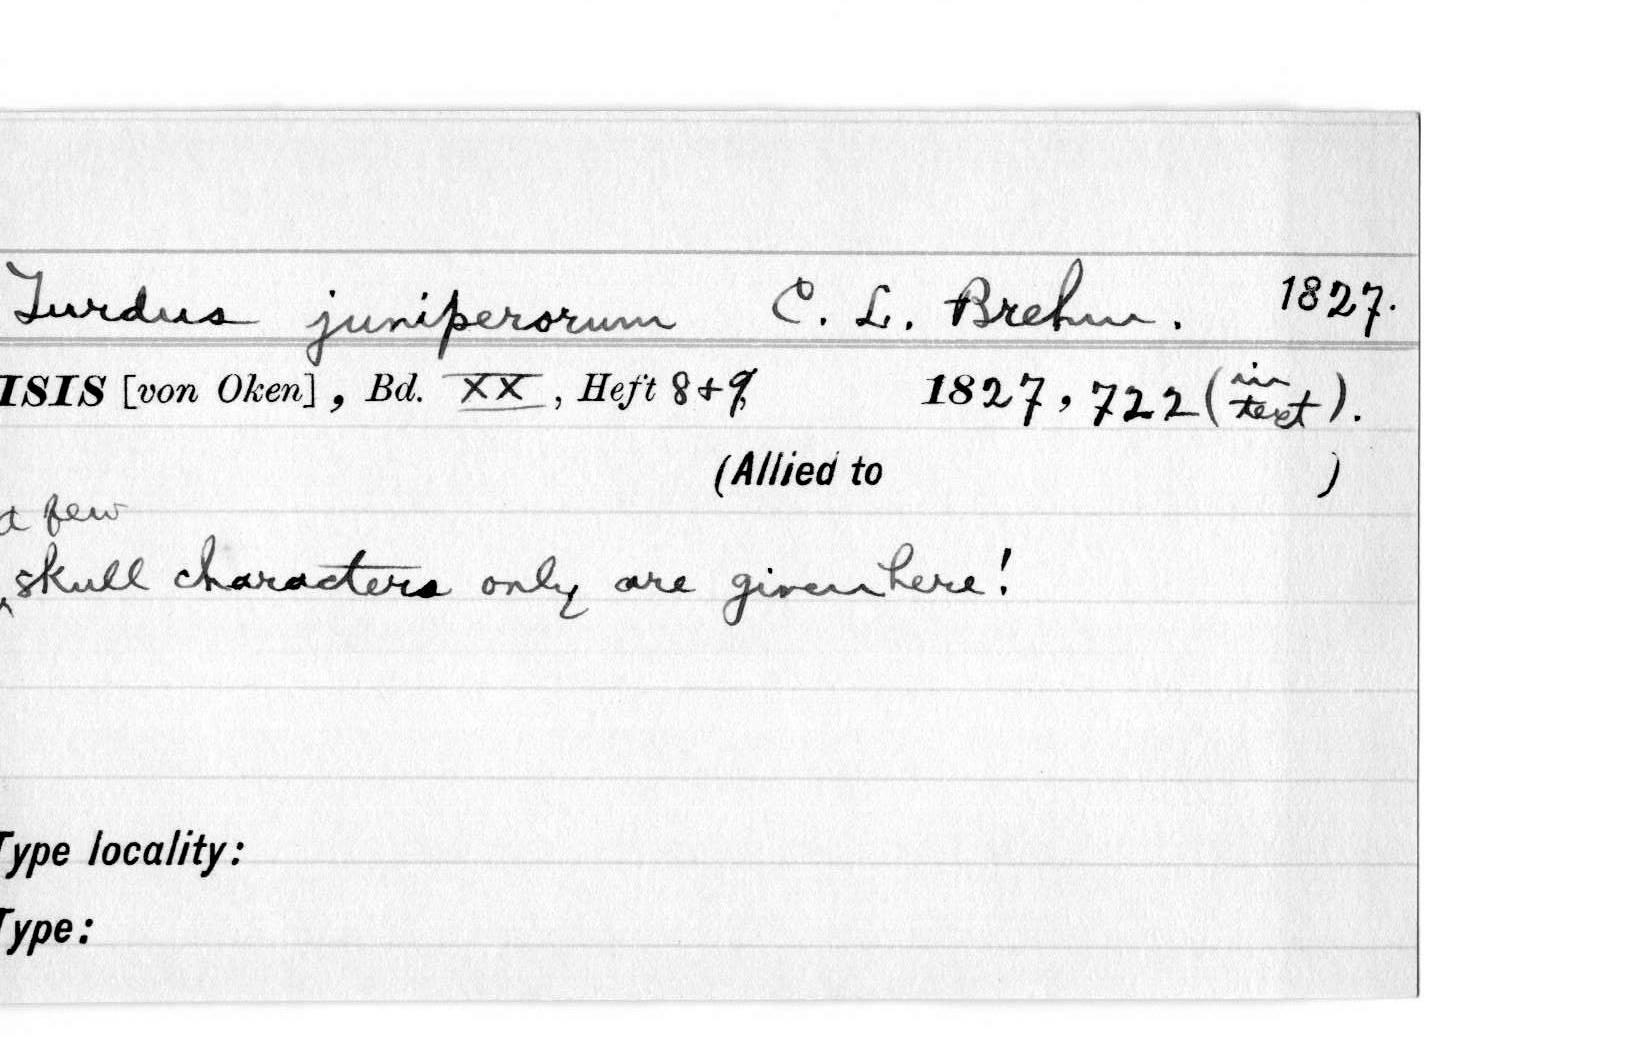 Turdus juniperorum C. L. Brehm. 1827.
ISIS [von Oken], Bd. XX, Heft 8+9, 1827, 722 (in text).
(Allied to )
a few
^ skull characters only are given here!
Type locality:
Type: